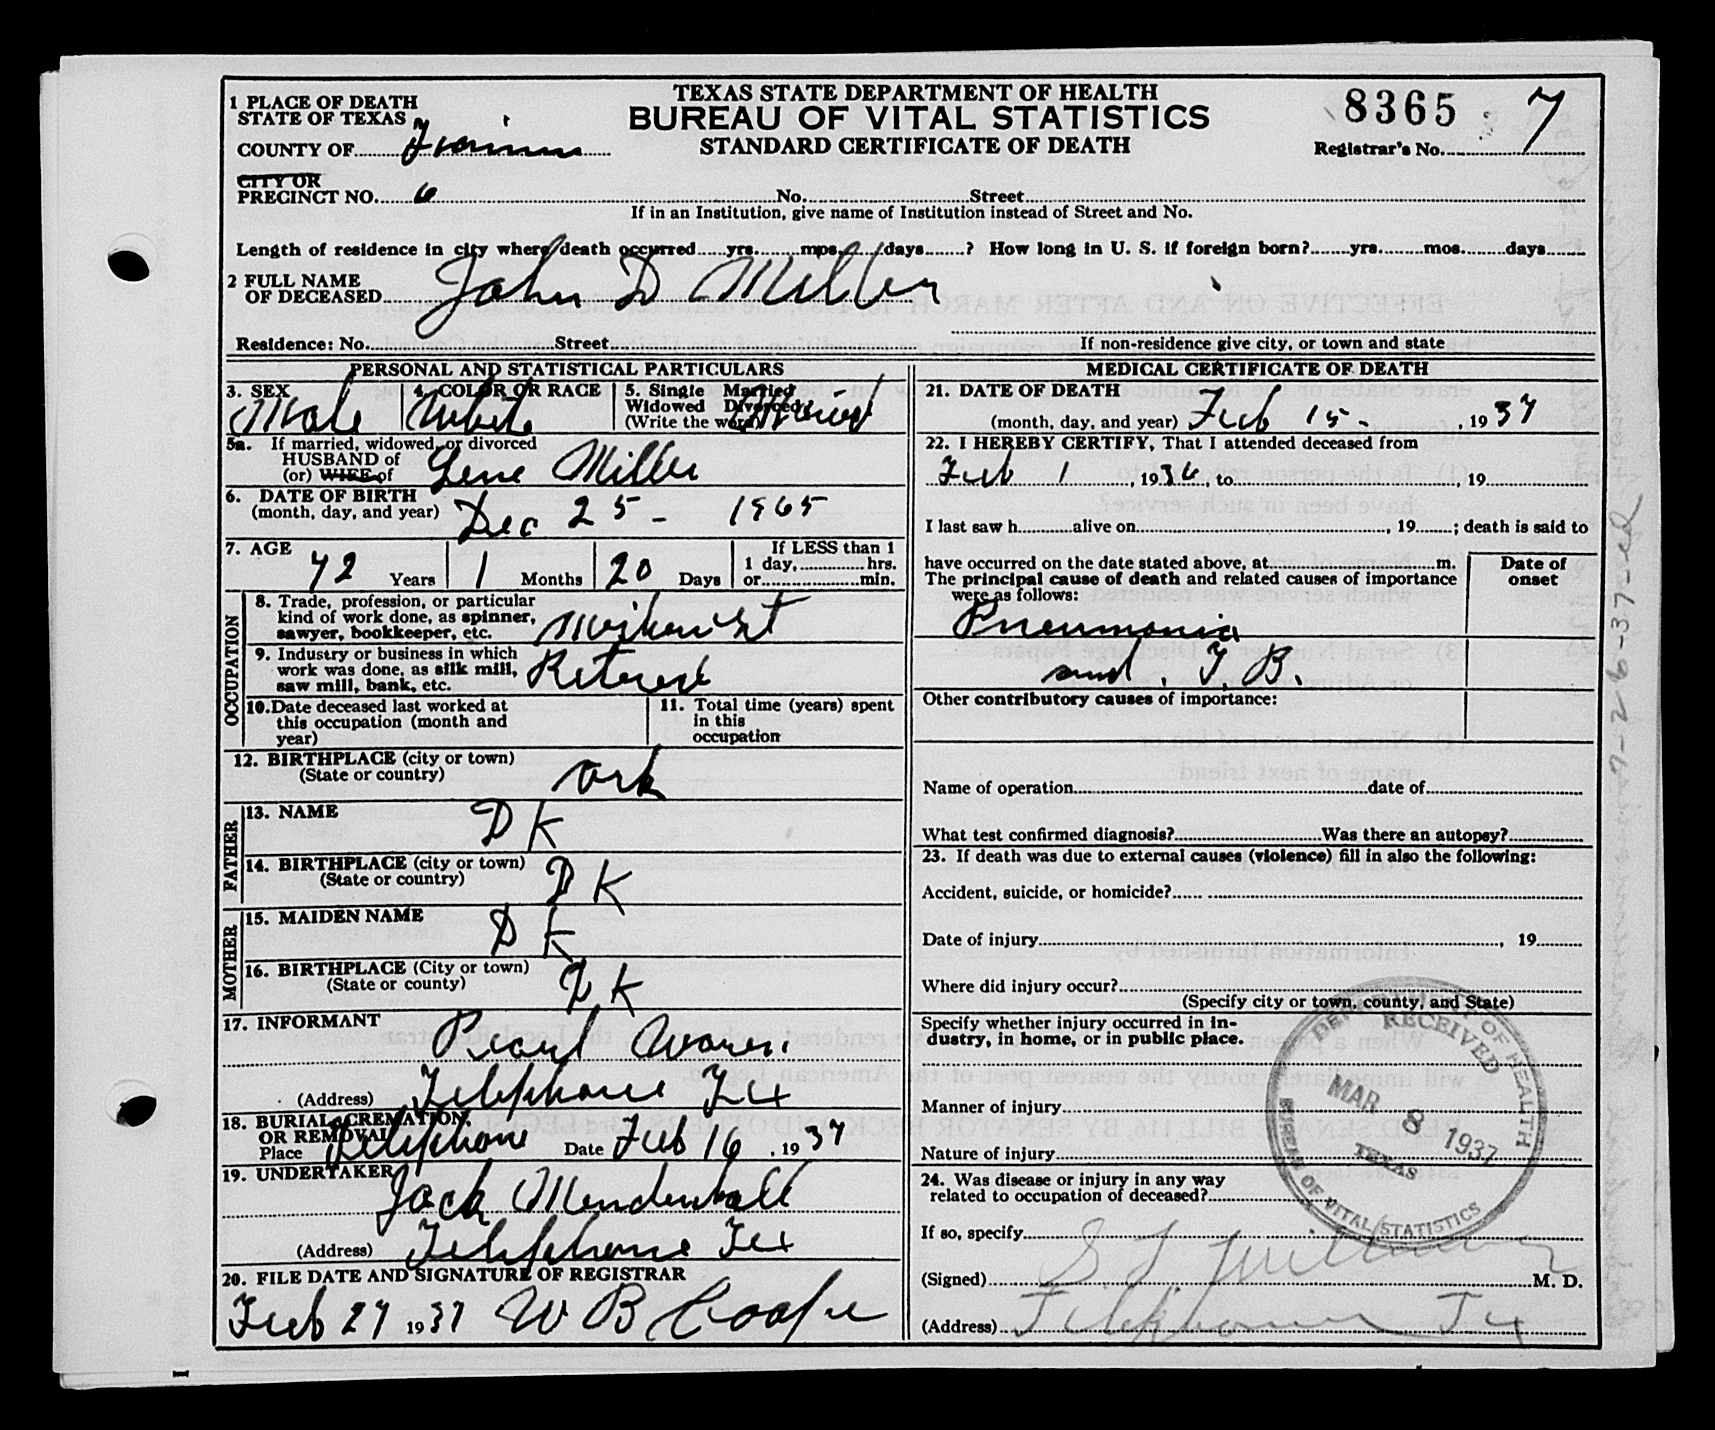 TEXAS STATE DEPARTMENT OF HEALTH
BUREAU OF VITAL STATISTICS
STANDARD CERTIFICATE OF DEATH
8365 7
Registrar's No. 7
1 PLACE OF DEATH
STATE OF TEXAS
COUNTY OF
CITY OR
PRECINCT NO. 6 No. Street
If in an Institution, give name of Institution instead of Street and No.
Length of residence in city where death occurred yrs. mos. days ? How long in U. S. if foreign born? yrs. mos. days
2 FULL NAME
OF DECEASED John D Miller
Residence: No. Street
If non-residence give city, or town and state
PERSONAL AND STATISTICAL PARTICULARS
3. SEX Male
4. COLOR OR RACE White
5. Single Married
Widowed Divorced
(Write the word) Maried
5a. If married, widowed, or divorced
HUSBAND of
(or) WIFE of Gene Miller
6. DATE OF BIRTH
(month, day, and year) Dec 25 - 1965
7. AGE 72 Years 1 Months 20 Days
If LESS than 1
1 day, hrs.
or min.
OCCUPATION
8. Trade, profession, or particular
kind of work done, as spinner,
sawyer, bookkeeper, etc.
9. Industry or business in which
work was done, as silk mill,
saw mill, bank, etc.
10. Date deceased last worked at
this occupation (month and
year)
11. Total time (years) spent
in this
occupation
12. BIRTHPLACE (city or town)
(State or country) Ark
FATHER
13. NAME D K
14. BIRTHPLACE (city or town)
(State or country) D K
MOTHER
15. MAIDEN NAME D K
16. BIRTHPLACE (City or town)
(State or county) D K
17. INFORMANT Pearl
(Address) Telephone Tex
18. BURIAL, CREMATION,
OR REMOVAL
Place Telephone Date Feb 16, 1937
19. UNDERTAKER Jack Mendenhall
(Address) Telephone Tex
20. FILE DATE AND SIGNATURE OF REGISTRAR
Feb 27 1937 W B
MEDICAL CERTIFICATE OF DEATH
21. DATE OF DEATH
(month, day, and year) Feb 15 - , 1937
22. I HEREBY CERTIFY, That I attended deceased from
Feb 1, 1936, to 19
I last saw h alive on , 19 ; death is said to
have occurred on the date stated above, at m.
The principal cause of death and related causes of importance
were as follows:
Date of
onset
Pneumonia
and . T. B.
Other contributory causes of importance:
Name of operation date of
What test confirmed diagnosis? Was there an autopsy?
23. If death was due to external causes (violence) fill in also the following:
Accident, suicide, or homicide?
Date of injury , 19
Where did injury occur?
(Specify city or town, county, and State)
Specify whether injury occurred in in-
dustry, in home, or in public place.
Manner of injury
Nature of injury
24. Was disease or injury in any way
related to occupation of deceased?
If so, specify
(Signed) M. D.
(Address) Telephone Tex
DEPARTMENT OF HEALTH
RECEIVED
MAR 8 1937
TEXAS
BUREAU OF VITAL STATISTICS